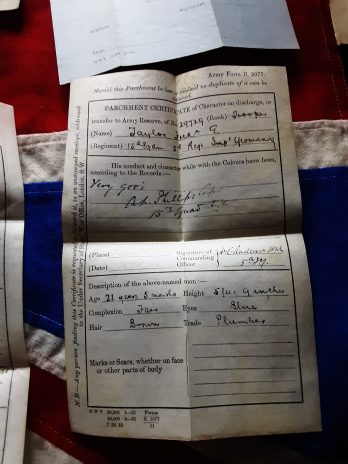 Address
Signature
Date
Army Form B. 2077.
Should this Parchment be lost or mislaid no duplicate of it can be
PARCHMENT CERTIFICATE of Character on discharge, or
transfer to Army Reserve, of No. (Rank) Trooper
(Name) Taylor G
(Regiment) 15 Sqn 5th Regt Imp Yeomanry
His conduct and character while with the Colours have been,
according to the Records:—
Very good
15th Squad
(Place) Signature of
Commanding
(Date) Officer
Description of the above-named man:—
Age 21 years 3 months Height 5 feet 9 inches
Complexion Fair Eyes Blue
Hair Brown Trade Plumber
Marks or Scars, whether on face
or other parts of body
N.B.—Any person finding this Certificate is requested to forward it, in an unstamped envelope, addressed
to the Under Secretary of State, War Office, London, S.W.
Forms
B. 2077